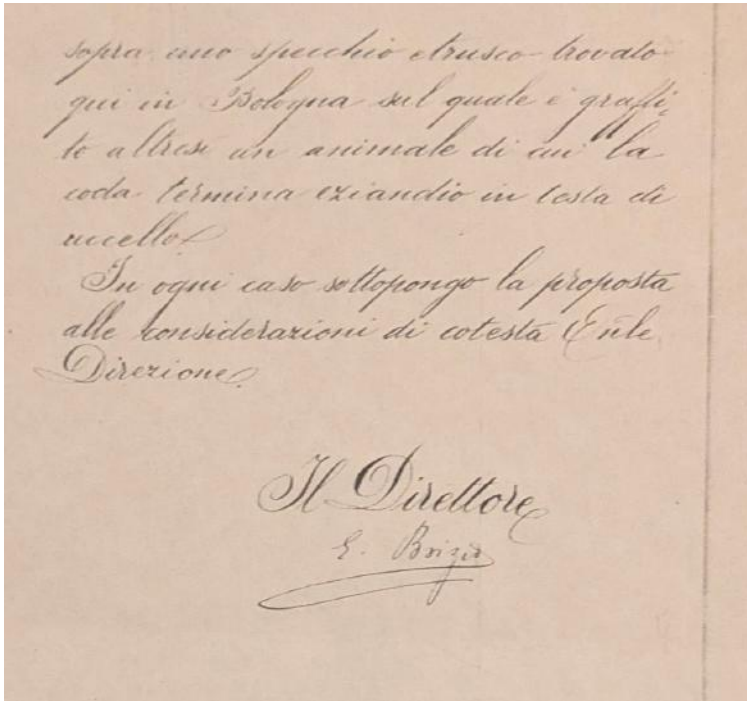 sopra uno specchio etrusco trovato
qui in Bologna sul quale è graffi-
to altresì un animale di cui la
coda termina eziandio in testa di
uccello.
In ogni caso sottopongo la proposta
alle considerazioni di cotesta
Direzione.
Il Direttore
E. Brizio